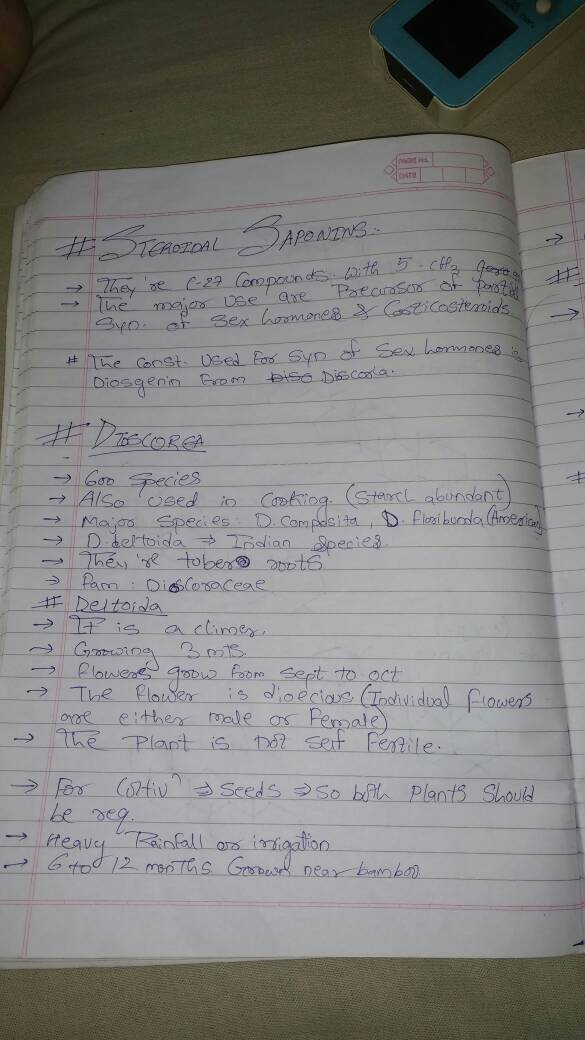 PAGE No.
DATE
# STEROIDAL SAPONINS.
→ They're C-27 Compounds. With 5-CH3
→ The major Use are Precursor of partial
Syn. of Sex hormones & Costicosteroids
# The Const. Used For Syn of Sex hormones is
Diosgenin From Discoria.
# DIOSCOREA
→ 600 Species
→ Also Used in Cooking. (Starch abundant)
→ Major Species: D. Composita, D. floribunda (American)
→ D. deltoida ⇒ Indian Species.
→ They're tubero roots
→ Fam: Dioscoraceae
# Deltoida
→ It is a climer.
→ Growing 3 mts.
→ Flowers grow from Sept to oct
→ The flower is dioecious (Individual flowers
are either male or female)
→ The Plant is not self Fertile.
→ For Cultivn ⇒ Seeds ⇒ So both Plants Should
be req.
→ Heavy Rainfall or irrigation
→ 6 to 12 months. Grown near bamboo